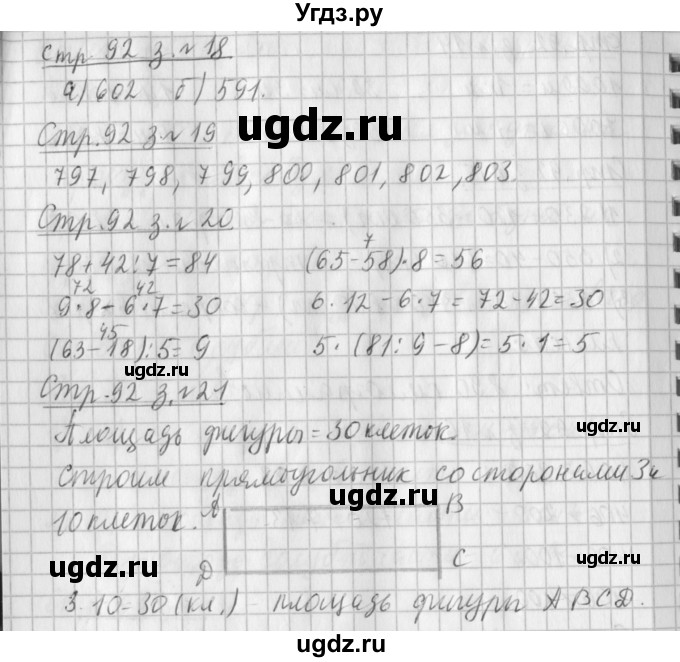 Угдз.ру
стр. 92 з. № 18
а) 602 б) 591.
ugdz.ru
Стр. 92 з № 19
ugdz.ru
797, 798, 799, 800, 801, 802, 803
Стр. 92 з. № 20
7
78+42:7=84 (65-58)·8=56
72 42
9·8-6·7=30 6·12-6·7=72-42=30
45
(63-18):5=9 5·(81:9-8)=5·1=5
ugdz.ru ugdz.ru
Стр. 92 з. № 21
Площадь фигуры=30 клеток.
Строим прямоугольник со сторонами 3 и
ugdz.ru
10 клеток. А В
ugdz.ru
Д С
3·10=30 (кл.) - площадь фигуры АВСД.
ugdz.ru ugdz.ru